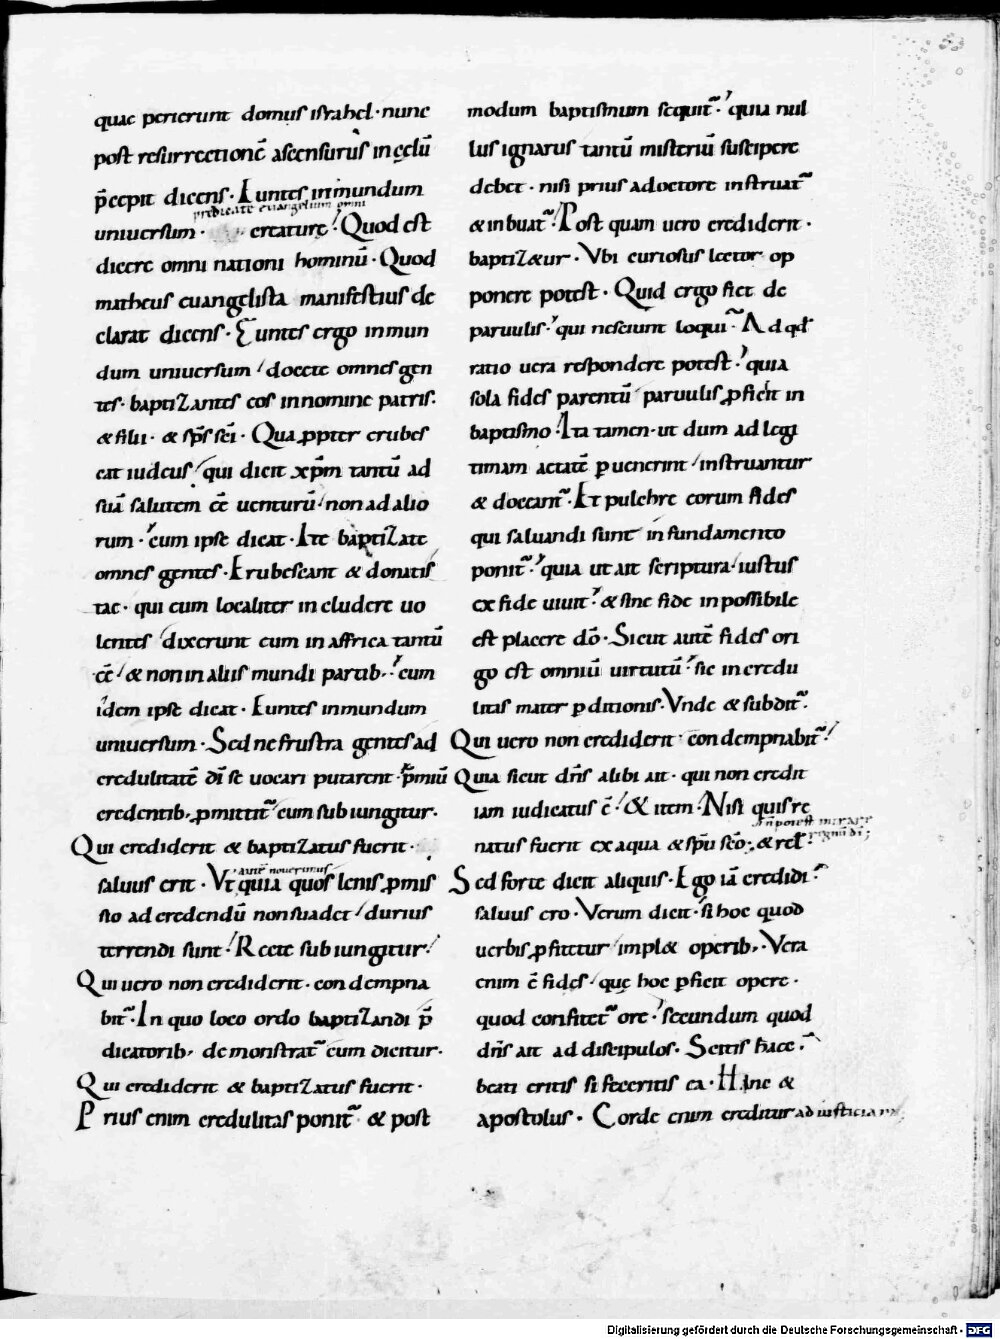 quae perierunt domus israhel · nunc
post resurrectionē ascensurus in cęlū
p̄cepit dicens · Euntes in mundum
predicate euangelium omni
uniuersum · creaturę · Quod est
dicere omni nationi hominū · Quod
matheus euangelista manifestius de
clarat dicens · Euntes ergo in mun
dum uniuersum / docete omnes gen
tes · baptizantes eos in nomine patris ·
& filii · & sp̄s sc̄i · Qua ꝓpter erubes
cat iudeus / qui dicit xp̄m tantū ad
suā salutem ēē uenturū / non ad alio
rum · cum ipse dicat · Ite baptizate
omnes gentes · Erubescant & donatis
tae · qui eum localiter includere uo
lentes dixerunt eum in affrica tantū
ēē / & non in aliis mundi partib; · cum
idem ipse dicat · Euntes in mundum
uniuersum · Sed ne frustra gentes ad
credulitatē dn̄i se uocari putarent · p̄miū
credentib; ꝓmittit̄ cum subiungitur ·
Qui crediderit & baptizatus fuerit ·
saluus erit · Vt quia quos lenis ꝓmis
autē nouerimus
sio ad credendū non suadet / durius
terrendi sunt · Recte subiungitur ·
Qui uero non crediderit · condempna
bit̄ · In quo loco ordo baptizandi p̄
dicatorib; demonstrat̄ cum dicitur ·
Qui crediderit & baptizatus fuerit ·
Prius enim credulitas ponit̄ & post
modum baptismum sequit̄ · quia nul
lus ignarus tantū misteriū suscipere
debet · nisi prius a doctore instruat̄
& inbuat̄ · Post quam uero crediderit ·
baptiz&ur · Vbi curiosus lector op
ponere potest · Quid ergo fiet de
paruulis · qui nesciunt loqui · Ad qd̄
ratio uera respondere potest · quia
sola fides parentū paruulis ꝓficit in
baptismo · Ita tamen · ut dum ad legi
timam aetatē ꝑuenerint / instruantur
& doceant̄ · Et pulchre eorum fides
qui saluandi sunt in fundamento
ponit̄ · quia ut ait scriptura / iustus
ex fide uiuit · & sine fide inpossibile
est placere dō · Sicut autē fides ori
go est omniū uirtutū · sic incredu
litas mater ꝑditionis · Vnde & subdit̄ ·
Qui uero non crediderit · condempnabit̄ ·
Quia sicut dn̄s alibi ait · qui non credit
iam iudicatus ē · & item · Nisi quis re
natus fuerit ex aqua & sp̄u sc̄o · & rel̄ ·
n̄ potest intrare
regnū dī ;
Sed forte dicit aliquis · Ego iā credidi ·
saluus ero · Verum dicit · si hoc quod
uerbis ꝓfitetur / impl& operib; · Vera
enim ē fides / quę hoc ꝑficit opere ·
quod confitet̄ ore · secundum quod
dn̄s ait ad discipulos · Scitis haec ·
beati eritis si feceritis ea · Hinc &
apostolus · Corde enim creditur ad iusticiam
Digitalisierung gefördert durch die Deutsche Forschungsgemeinschaft · DFG